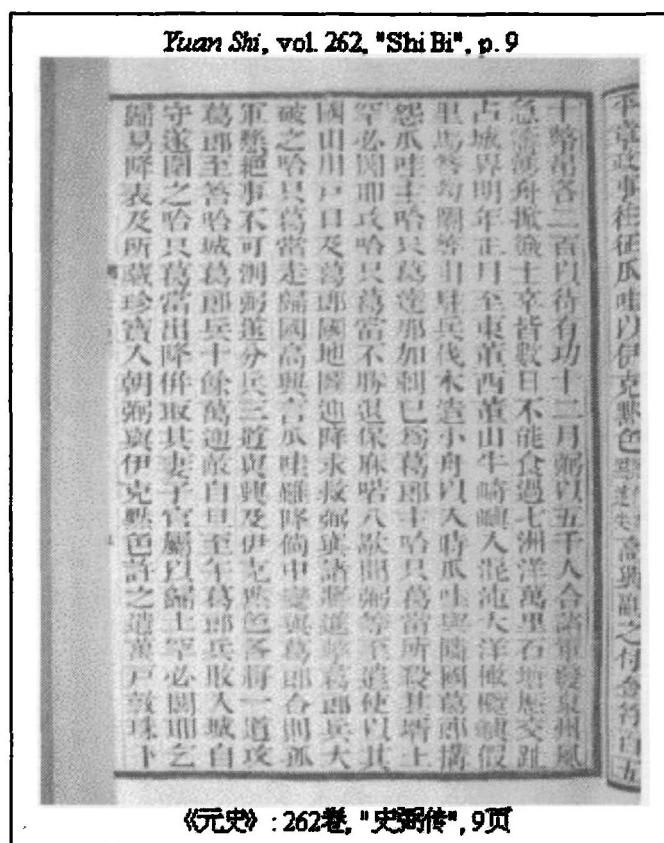 Yuan Shi, vol. 262, "Shi Bi", p. 9
平章政事往征爪哇以伊克黙色高興副之付金符百五
十幣帛各二百以待有功十二月弼以五千人合諸軍發泉州風
急濤湧舟掀簸士卒皆數日不能食過七洲洋萬里石塘歷交趾
占城界明年正月至東董西董山牛崎嶼入混沌大洋橄欖嶼假
里馬答勾闌等山駐兵伐木造小舟以入時爪哇與隣國葛郎搆
怨爪哇主哈只葛達那加剌已爲葛郎主哈只葛當所殺其壻土
罕必闍耶攻哈只葛當不勝退保麻喏八歇聞弼等至遣使以其
國山川戶口及葛郎國地圖迎降求救弼與諸將進擊葛郎兵大
破之哈只葛當走歸國高興言爪哇雖降倘中變與葛郎合則孤
軍懸絕事不可測弼遂分兵三道與興及伊克黙色各將一道攻
葛郎至答哈城葛郎兵十餘萬迎敵自旦至午葛郎兵敗入城自
守遂圍之哈只葛當出降併取其妻子官屬以歸土罕必闍耶乞
歸易降表及所藏珍寶入朝弼與伊克黙色許之遣萬戶敦珠卜
《元史》: 262卷, "史弼传", 9页